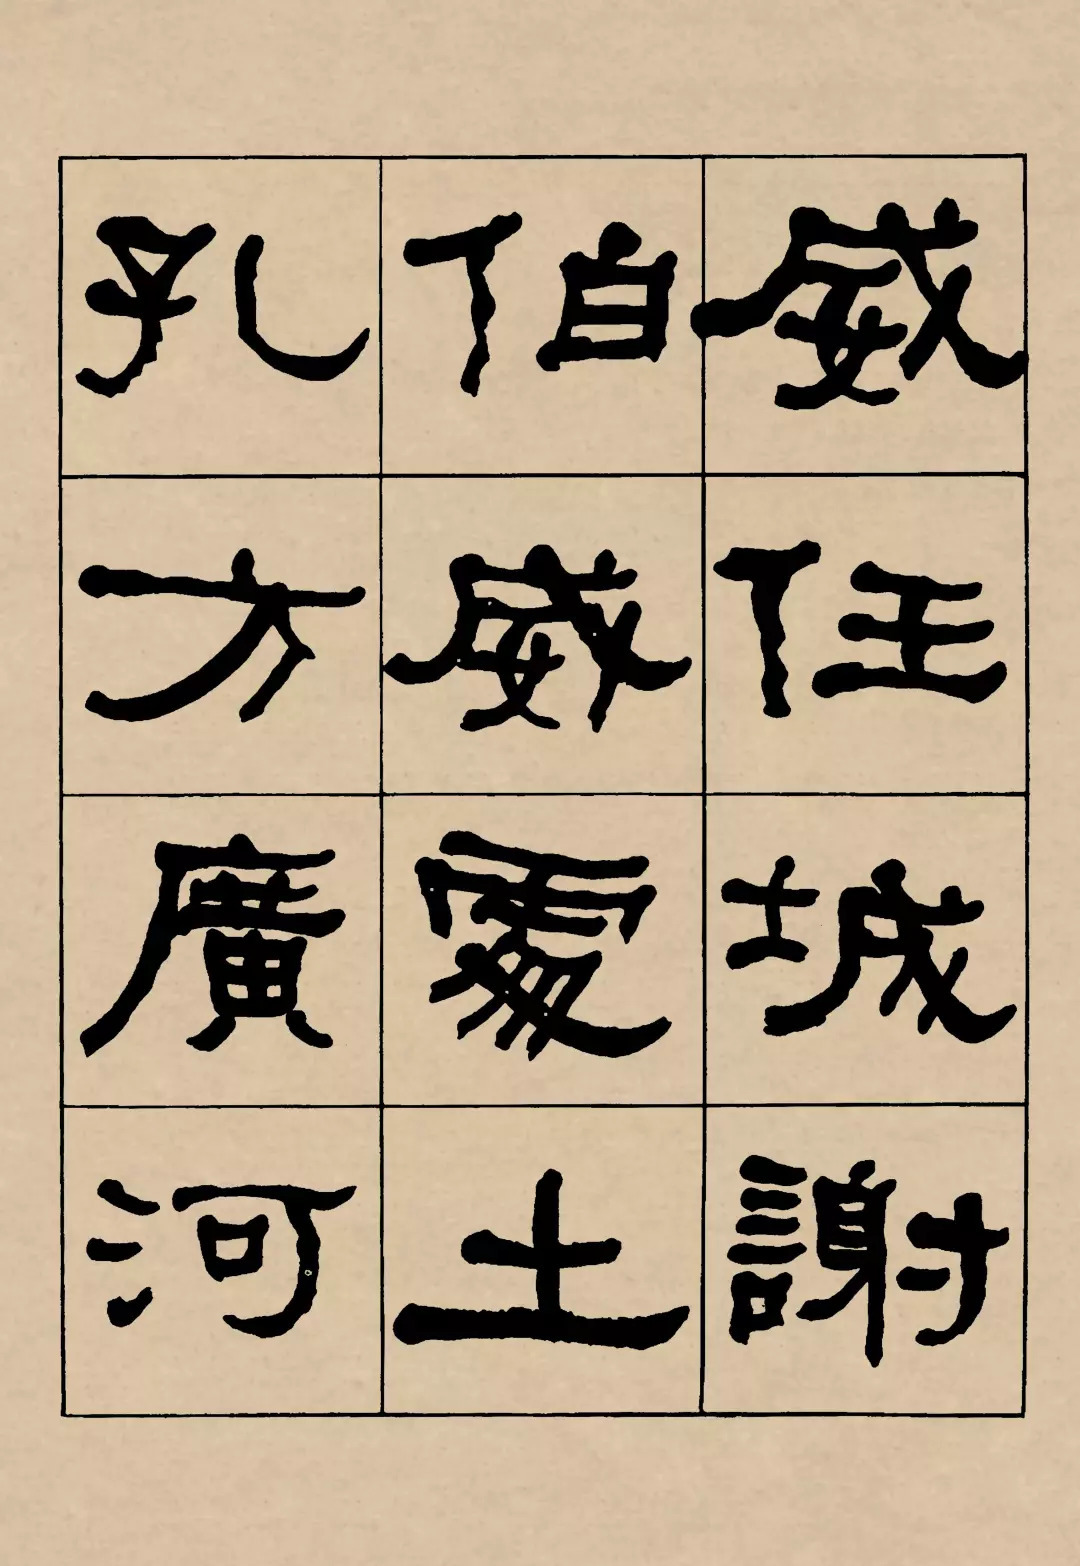 威任城謝
伯威處士
孔方廣河